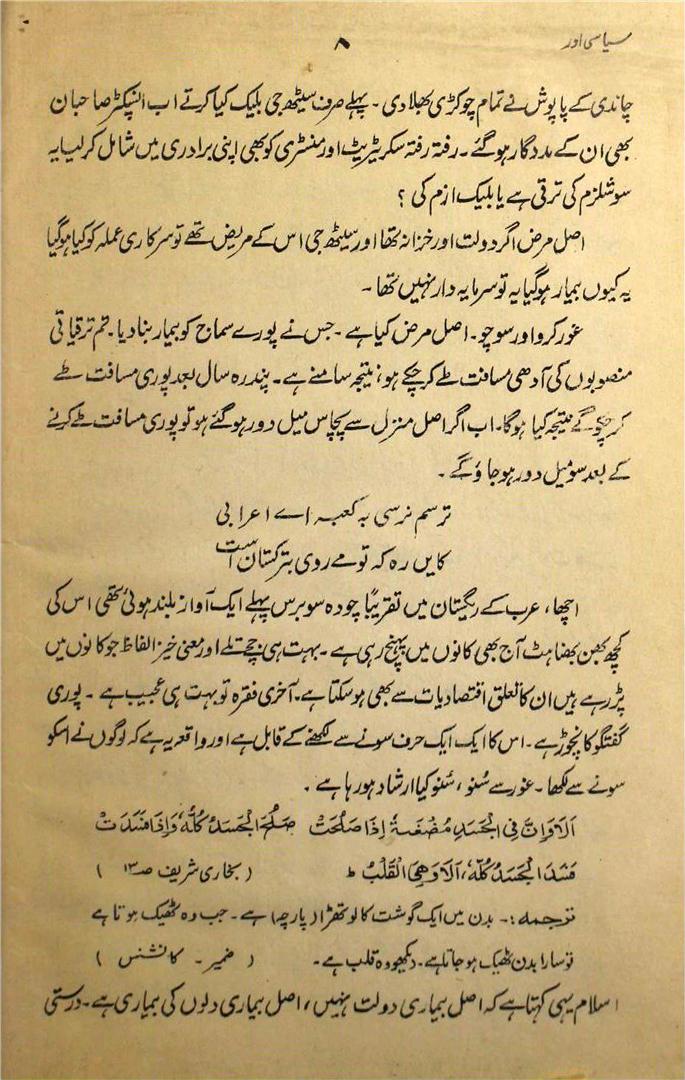 سیاسی اور
۸
چاندی کے پاپوش نے تمام چوکڑی بھلا دی ۔ پہلے صرف سیٹھ جی بلیک کیا کرتے اب انسپکٹر صاحبان
بھی ان کے مددگار ہو گئے ۔ رفتہ رفتہ سکریٹریٹ اور منسٹری کو بھی اپنی برادری میں شامل کر لیا یہ
سوشلزم کی ترقی ہے یا بلیک ازم کی ؟
اصل مرض اگر دولت اور خزانہ تھا اور سیٹھ جی اس کے مریض تھے تو سرکاری عملہ کو کیا ہو گیا
یہ کیوں بیمار ہو گیا یہ تو سرمایہ دار نہیں تھا ۔
غور کرو اور سوچو ۔ اصل مرض کیا ہے ۔ جس نے پورے سماج کو بیمار بنا دیا ۔ تم ترقیاتی
منصوبوں کی آدھی مسافت طے کر چکے ہو ، نتیجہ سامنے ہے ۔ پندرہ سال بعد پوری مسافت طے
کر چکو گے نتیجہ کیا ہوگا ۔ اب اگر اصل منزل سے پچاس میل دور ہو گئے ہو تو پوری مسافت طے کرنے
کے بعد سو میل دور ہو جاؤ گے ۔
ترسم نرسی بہ کعبہ اے اعرابی
کایں رہ کہ تو مے روی بترکستان است
اچھا ، عرب کے ریگستان میں تقریباً چودہ سو برس پہلے ایک آواز بلند ہوئی تھی اس کی
کچھ بھن بھناہٹ آج بھی کانوں میں پہنچ رہی ہے ۔ بہت ہی جچے تلے اور معنی خیز الفاظ جو کانوں میں
پڑ رہے ہیں ان کا تعلق اقتصادیات سے بھی ہو سکتا ہے ۔ آخری فقرہ تو بہت ہی عجیب ہے ۔ پوری
گفتگو کا نچوڑ ہے ۔ اس کا ایک ایک حرف سونے سے لکھنے کے قابل ہے اور واقعہ یہ ہے کہ لوگوں نے اسکو
سونے سے لکھا ۔ غور سے سُنو ، سُنو کیا ارشاد ہو رہا ہے ۔
اَلَا وَاِنَّ فِی الْجَسَدِ مُضْغَۃً اِذَا صَلُحَتْ صَلُحَ الْجَسَدُ کُلُّہٗ وَاِذَا فَسَدَتْ
فَسَدَ الْجَسَدُ کُلُّہٗ ، اَلَا وَھِیَ الْقَلْبُ ط ( بخاری شریف صد ۱۳ )
ترجمہ :۔ بدن میں ایک گوشت کا لوتھڑا ( پارچہ ) ہے ۔ جب وہ ٹھیک ہوتا ہے
تو سارا بدن ٹھیک ہو جاتا ہے ۔ دیکھو وہ قلب ہے ۔ ( ضمیر ۔ کانشنس )
اسلام یہی کہتا ہے کہ اصل بیماری دولت نہیں ، اصل بیماری دلوں کی بیماری ہے ۔ درستی